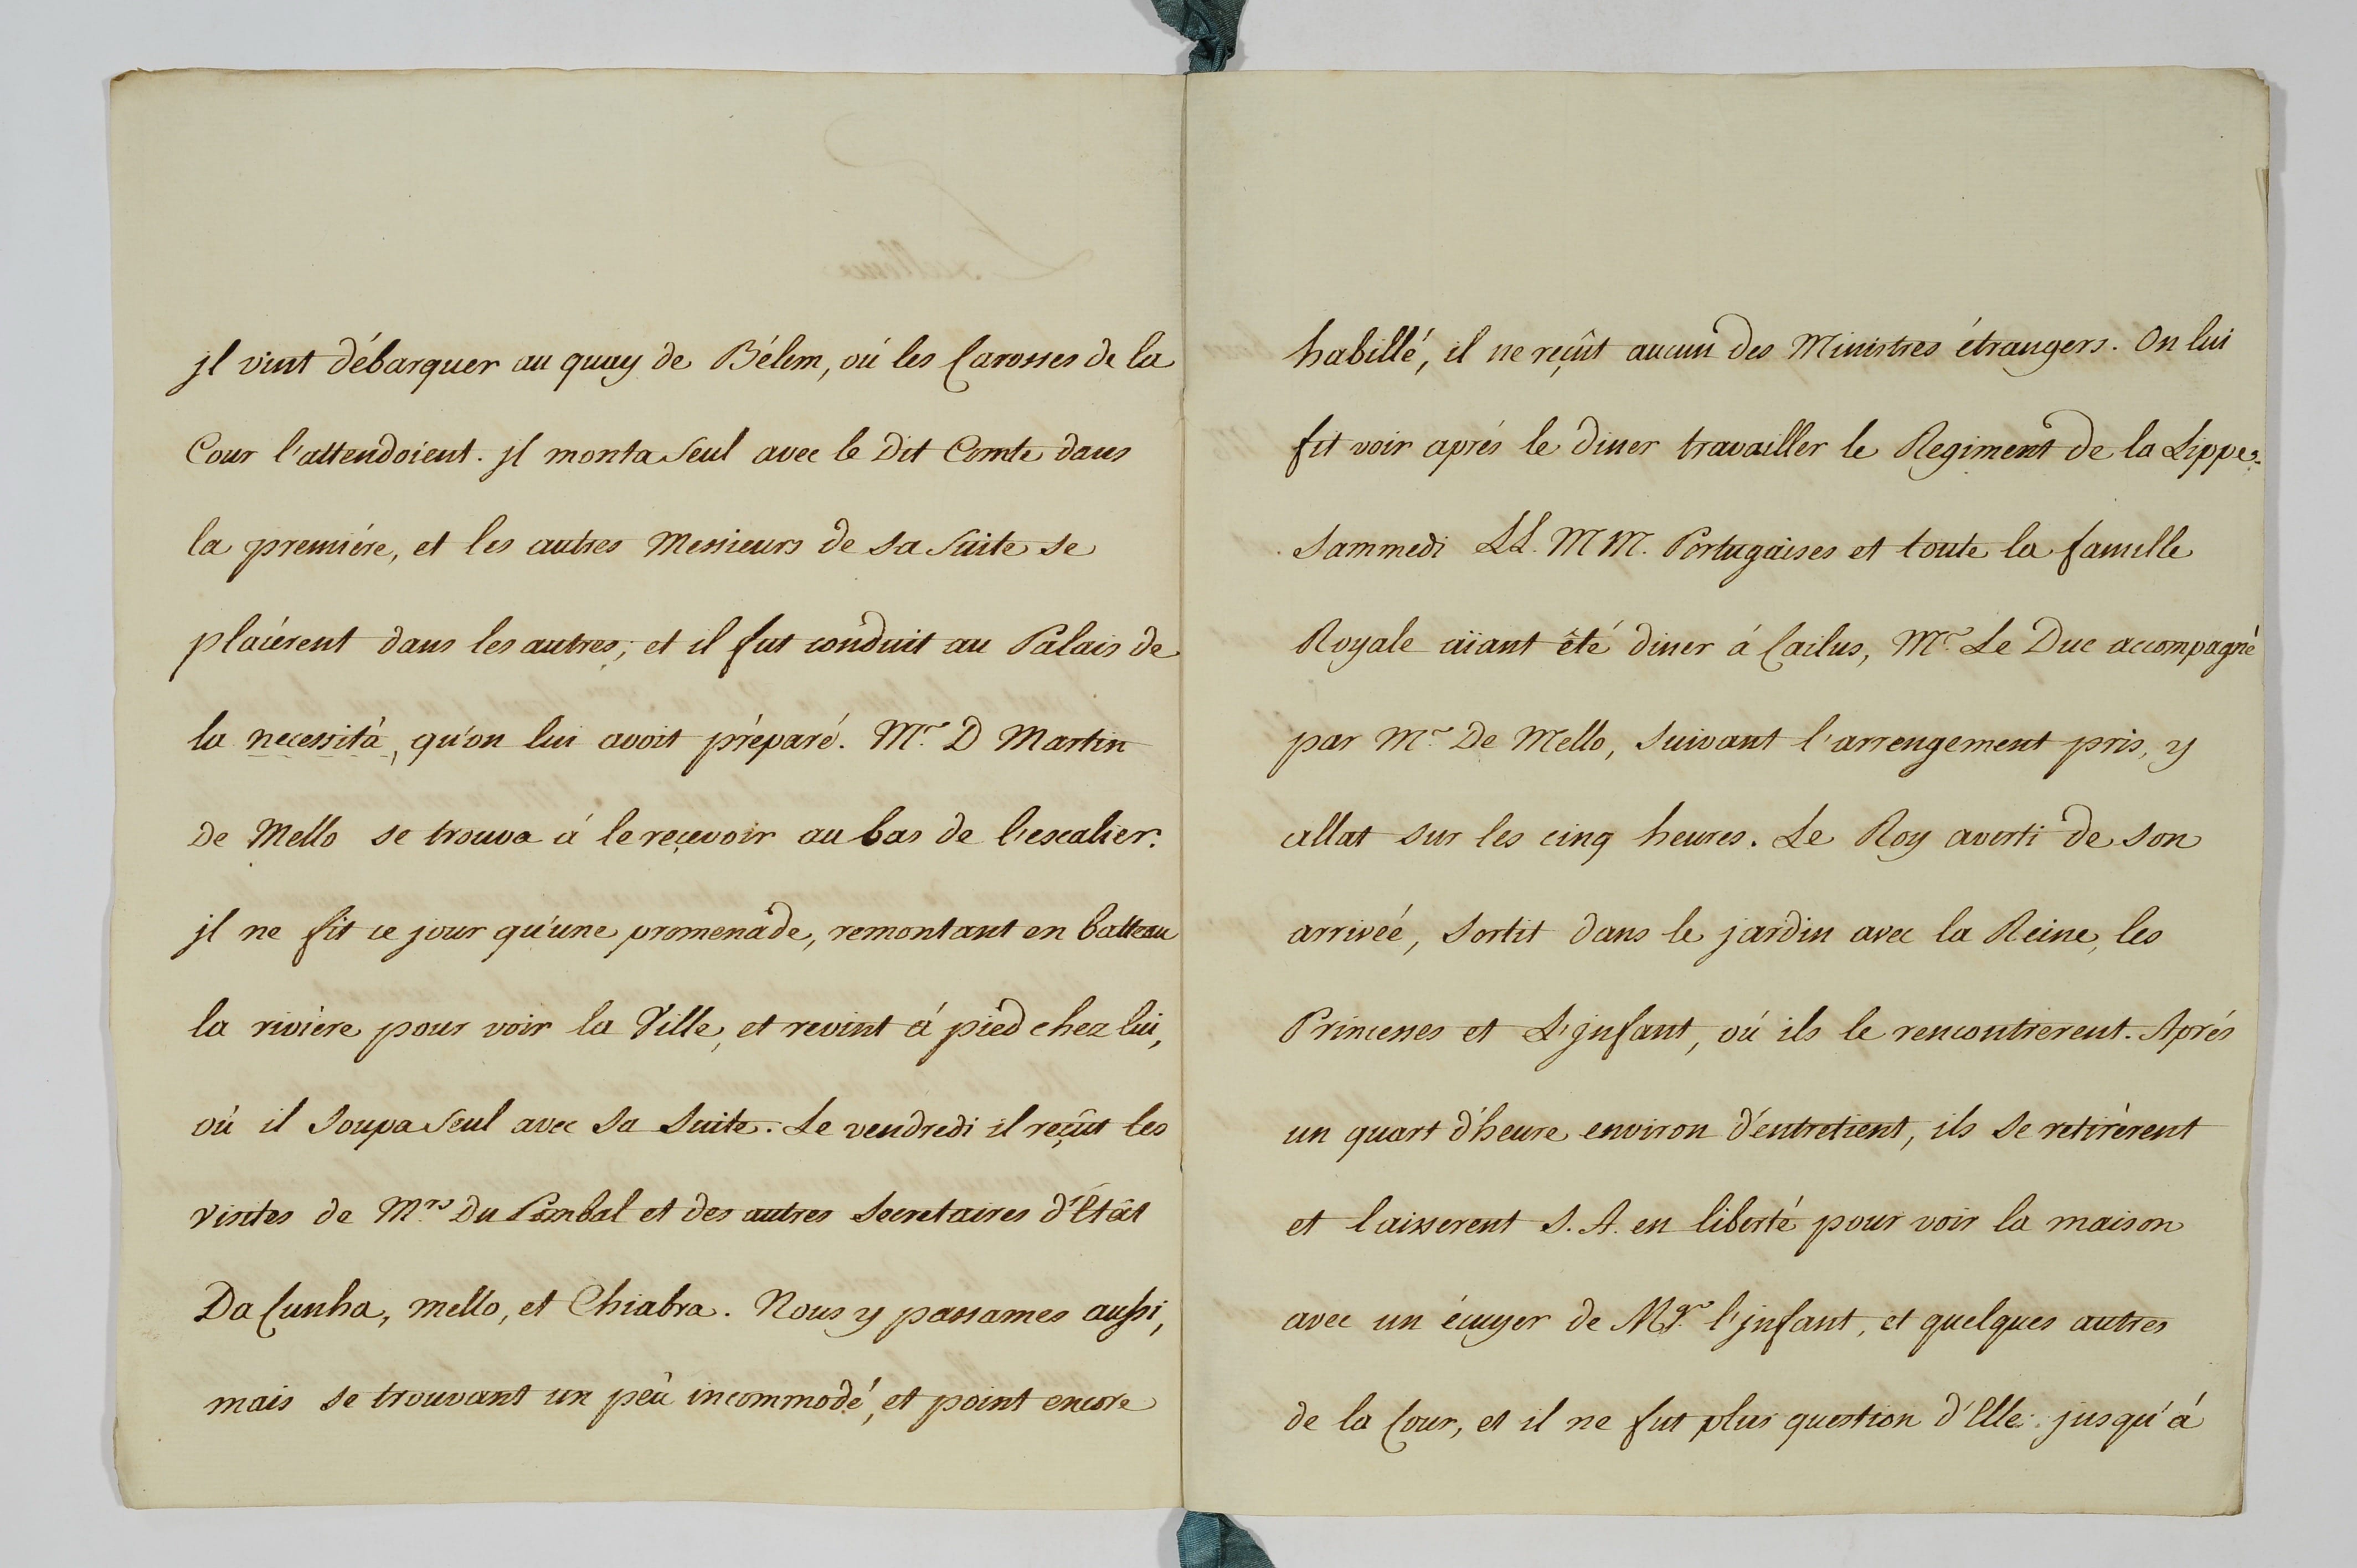 jl vint débarquer au quay de Bélem, où les Carosses de la
Cour l'attendoient. jl monta seul avec le Dit Comte dans
la premiére, et les autres Messieurs de sa suite se
placérent dans les autres; et il fut conduit au Palais de
la necessità, qu'on lui avoit préparé. Mr. D Martin
de Mello se trouva á le reçevoir au bas de l'escalier.
jl ne fit ce jour qu'une promenade, remontant en batteau
la riviére pour voir la Ville, et revint á pied chez lui,
où il soupa seul avec sa suite. Le vendredi il reçût les
visites de Mrs. Du Pombal et des autres Secretaires d'Etât
Da Cunha, mello, et Chiabra. Nous y passames aussi,
mais se trouvant un peû incommodé, et point encore
habillé, il ne reçût aucun des Ministres étrangers. On lui
fit voir aprés le diner travailler le Regiment de la Lippe.
Sammedi LL. MM. Portugaises et toute la famille
Royale aïant été diner á Cailus, Mr. Le Duc accompagné
par Mr. De Mello, suivant l'arrengement pris, y
allat sur les cinq heures. Le Roy averti de son
arrivéé, sortit dans le jardin avec la Reine, les
Princesses et L'jnfant, où ils le rencontrerent. Aprés
un quart d'heure environ d'entretient, ils se retirérent
et laisserent S. A. en liberté pour voir la maison
avec un écuyer de Mgr. l'jnfant, et quelques autres
de la Cour, et il ne fut plus question d'Elle jusqu'á